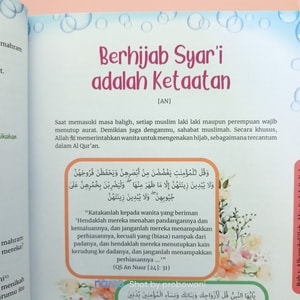 Berhijab Syar'i
adalah Ketaatan
[AN]
Saat memasuki masa baligh, setiap muslim laki laki maupun perempuan wajib
menutup aurat. Demikian juga denganmu, sahabat muslimah. Secara khusus,
Allah ﷻ memerintahkan wanita untuk mengenakan hijab, sebagaimana tercantum
dalam Al Qur'an.
وَقُلْ لِّلْمُؤْمِنٰتِ يَغْضُضْنَ مِنْ اَبْصَارِهِنَّ وَيَحْفَظْنَ فُرُوْجَهُنَّ
وَلَا يُبْدِيْنَ زِيْنَتَهُنَّ اِلَّا مَا ظَهَرَ مِنْهَا وَلْيَضْرِبْنَ بِخُمُرِهِنَّ عَلٰى
جُيُوْبِهِنَّ وَلَا يُبْدِيْنَ زِيْنَتَهُنَّ
"Katakanlah kepada wanita yang beriman
"Hendaklah mereka menahan pandangannya dan
kemaluannya, dan janganlah mereka menampakkan
perhiasannya, kecuali yang (biasa) nampak dari
padanya, dan hendaklah mereka menutupkan kain
kerudung ke dadanya, dan janganlah menampakkan
perhiasannya ..."
(QS An Nuur [24]: 31)
Shot by probowani